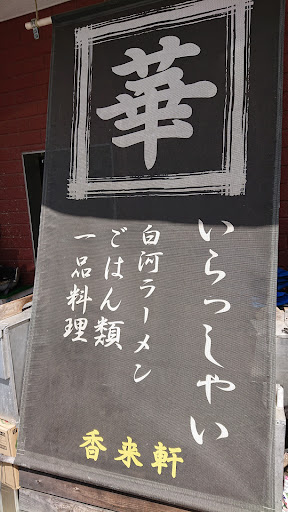 華
いらっしゃい
白河ラーメン
ごはん類
一品料理
香来軒